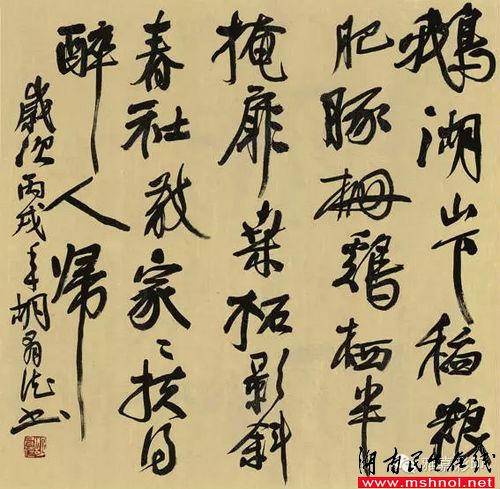 鵝湖山下稻粮
肥豚栅鷄栖半
掩扉桑柘影斜
春社散家〻扶得
醉人歸
歲次丙戌年胡书
湖南民生在线
www.mshnol.net